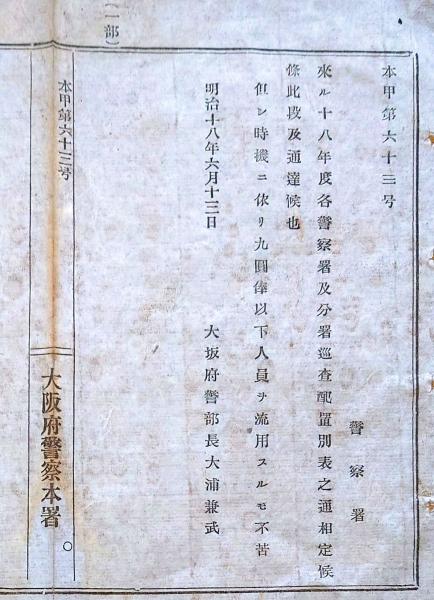 本甲第六十三号
警察署
來ル十八年度各警察署及分署巡査配置別表之通相定候
條此段及通達候也
但シ時機ニ依リ九圓俸以下人員ヲ流用スルモ不苦
明治十八年六月十三日
大坂府警部長大浦兼武
(一部)
本甲第六十三号
大阪府警察本署
○